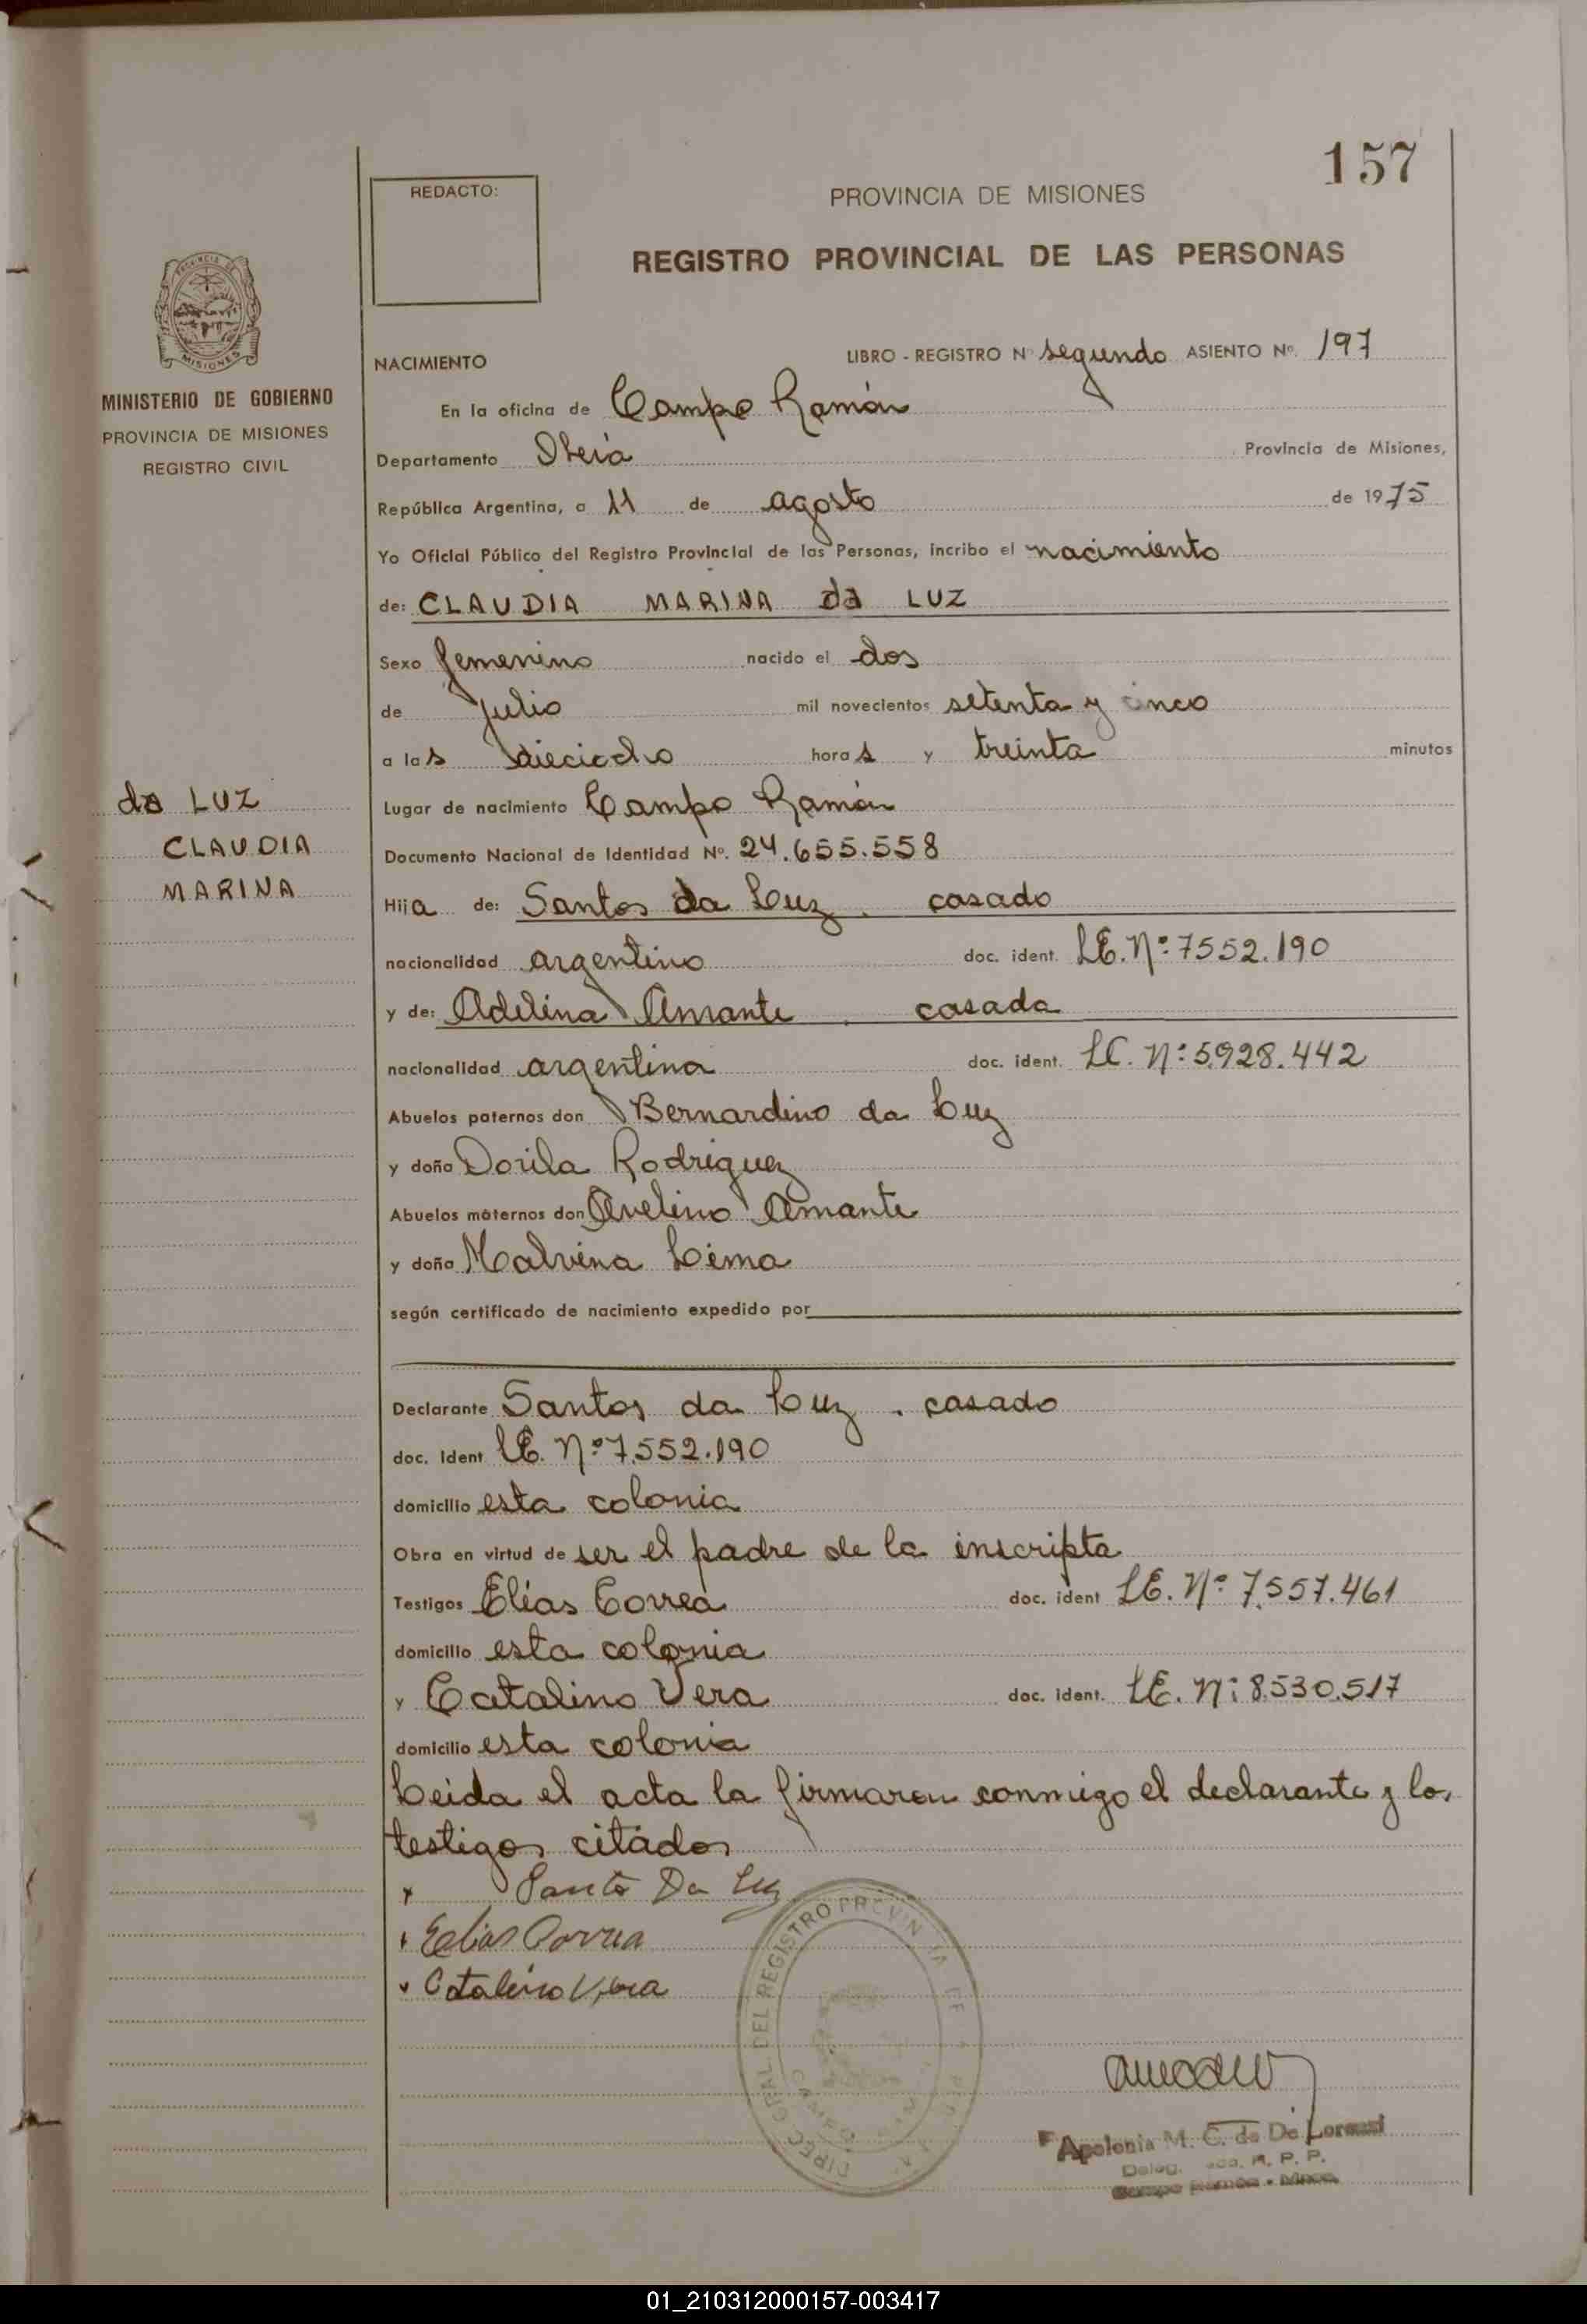 157
REDACTO:
PROVINCIA DE MISIONES
REGISTRO PROVINCIAL DE LAS PERSONAS
PROVINCIA DE
MISIONES
MINISTERIO DE GOBIERNO
PROVINCIA DE MISIONES
REGISTRO CIVIL
NACIMIENTO LIBRO - REGISTRO Nº segundo ASIENTO Nº. 197
En la oficina de Campo Ramón
Departamento Oberá Provincia de Misiones,
República Argentina, a 11 de agosto de 1975
Yo Oficial Público del Registro Provincial de las Personas, incribo el nacimiento
de: CLAUDIA MARINA da LUZ
Sexo femenino nacido el dos
de julio mil novecientos setenta y cinco
a las dieciocho horas y treinta minutos
da LUZ
CLAUDIA
MARINA
Lugar de nacimiento Campo Ramón
Documento Nacional de Identidad Nº. 24.655.558
Hija de: Santos da Luz . casado
nacionalidad argentino doc. ident. L.E. Nº 7552.190
y de: Adelina Amante . casada
nacionalidad argentina doc. ident. L.C. Nº 5.928.442
Abuelos paternos don Bernardino da Luz
y doña Dorila Rodriguez
Abuelos maternos don Avelino Amante
y doña Malvina Lima
según certificado de nacimiento expedido por
Declarante Santos da Luz . casado
doc. ident L.E. Nº 7.552.190
domicilio esta colonia
Obra en virtud de ser el padre de la inscripta
Testigos Elías Correa doc. ident L.E. Nº 7.557.461
domicilio esta colonia
y Catalino Vera doc. ident. L.E. Nº 8.530.517
domicilio esta colonia
Leida el acta la firmaron conmigo el declarante y los
testigos citados
Santo Da Luz
Elias Correa
Catalino Vera
DIREC. GRAL DEL REGISTRO PROVINCIAL DE
CAMPO
Apolonia M. C. de De Lorenzi
Deleg. R. P. P.
Campo Ramón - Mnes.
01_210312000157-003417